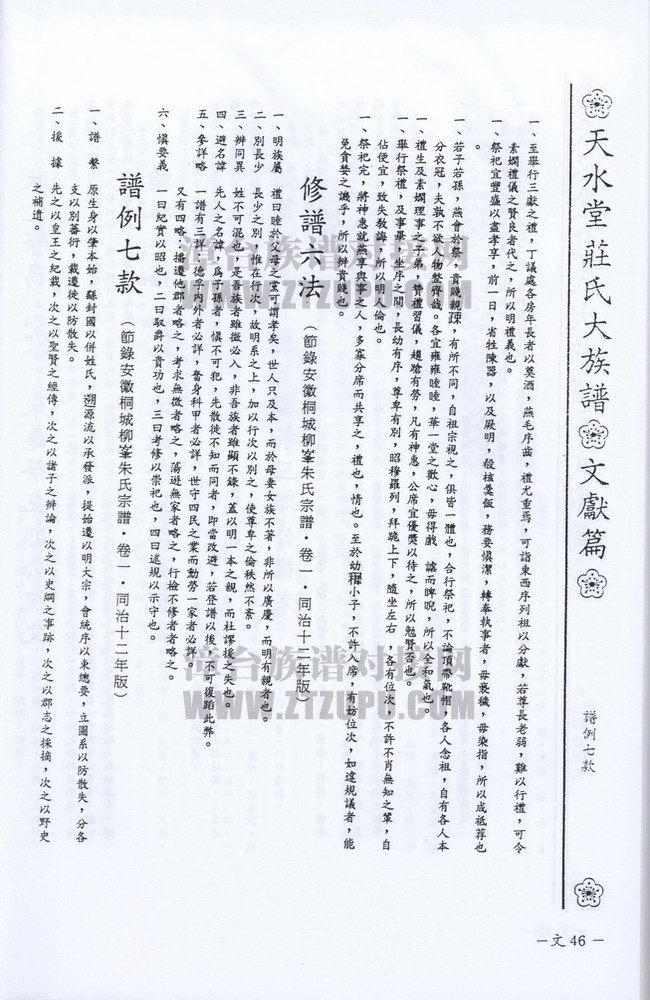 天水堂莊氏大族譜 文獻篇
譜例七款
—文 46—
一、至舉行三獻之禮，丁議處各房年長者以奠酒，燕毛序齒，禮尤重焉，可詣東西序列祖以分獻，若尊長老弱，難以行禮，可令
素嫻禮儀之賢良者代之，所以明禮義也。
一、祭祀宜豐盛以盡孝享，前一日，省牲陳器，以及厥明，殽核羹飯，務要慎潔，轉奉執事者，毋褻穢，毋染指，所以成祗荐也
。
一、若子若孫，燕會於祭，貴賤親疎，有所不同，自祖宗視之，俱皆一體也，合行祭祀，不論頂帶靴帽，各人念祖，自有各人本
分衣冠，夫孰不欲人物整齊哉。各宜雍雍睦睦，華一堂之歡心，毋得戲謔而睥睨，所以全和氣也。
一、禮生及素嫻理事之子弟，贊禮習儀，趨蹌有勞，凡有神惠，公席宜優獎以待之，所以勉賢否也。
一、舉行祭禮，及事畢，坐序之間，長幼有序，尊卑有別，昭穆羅列，拜跪上下，隨坐左右，各有位次，不許不肖無知之輩，自
佔便宜，致失敎誨，所以明人倫也。
一、祭祀完，將神惠就燕享與事之人，多寡分席而共享之，禮也，情也。至於幼穉小子，不許入席，有妨位次，如違規議者，能
免貪婪之譏乎，所以辨貴賤也。
修譜六法（節錄安徽桐城柳峯朱氏宗譜·卷一·同治十二年版）
一、明族屬 禮曰睦於父母之黨可謂孝矣，世人只及本，而於母妻女族不著，非所以廣慶，而明有親者也。
二、別長少 長少之別，惟在行次，故明系之上，加以行次以別之，使尊卑之倫秩然不紊。
三、辨同異 姓不可混也，是吾族者雖微必入，非吾族者雖顯不錄，蓋以明一本之親，而杜謬援之失也。
四、避名諱 先人之名諱，爲子孫者，慎不可犯，先散徙不知而同者，即當改避，若登譜以後，不可復蹈此弊。
五、參詳略 一譜有三詳：德孚內外者必詳，奮身科甲者必詳，世守四民之業而動勞一家者必詳。
又有四略：播遷他郡者略之，考求無徵者略之，蕩遊無家者略之，行檢不修者者略之。
六、慎要義 一曰紀實以昭也，二曰取爵以貴功也，三曰考修以崇祀也，四曰述規以示守也。
譜例七款（節錄安徽桐城柳峯朱氏宗譜·卷一·同治十二年版）
一、譜繫 原生身以肇本始，繇封國以併姓氏，溯源流以承發派，提始遷以明大宗，會統序以束總要，立圖系以防散失，分各
支以別蕃衍，裁遷徙以防散失。
二、援據 先之以皇王之紀載，次之以聖賢之經傳，次之以諸子之辨論，次之以史綱之事跡，次之以郡志之採摘，次之以野史
之補遺。
漳台族谱对接网
WWW.ZTZUPU.COM
漳台族谱对接网
WWW.ZTZUPU.COM